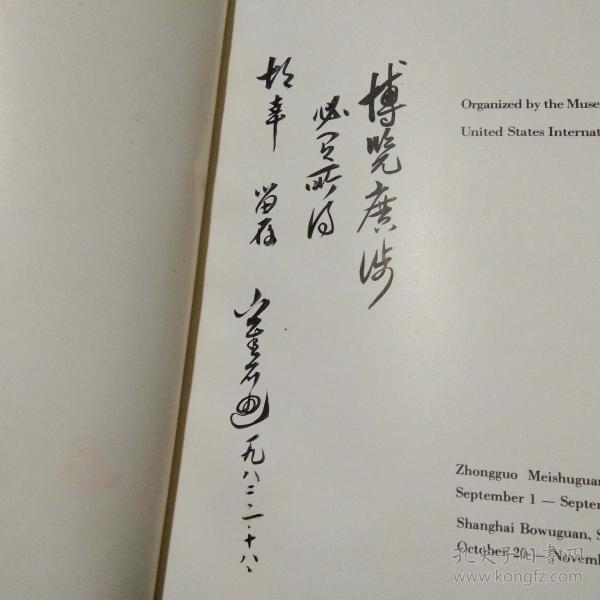 博览广涉
必有所得
胡幸 留存
一九八二·二·十八
Organized by the Muse
United States Internat
Zhongguo Meishuguan
September 1 — Septem
Shanghai Bowuguan, S
October 20 — Novemb
孔夫子旧书网
www.kongfz.com